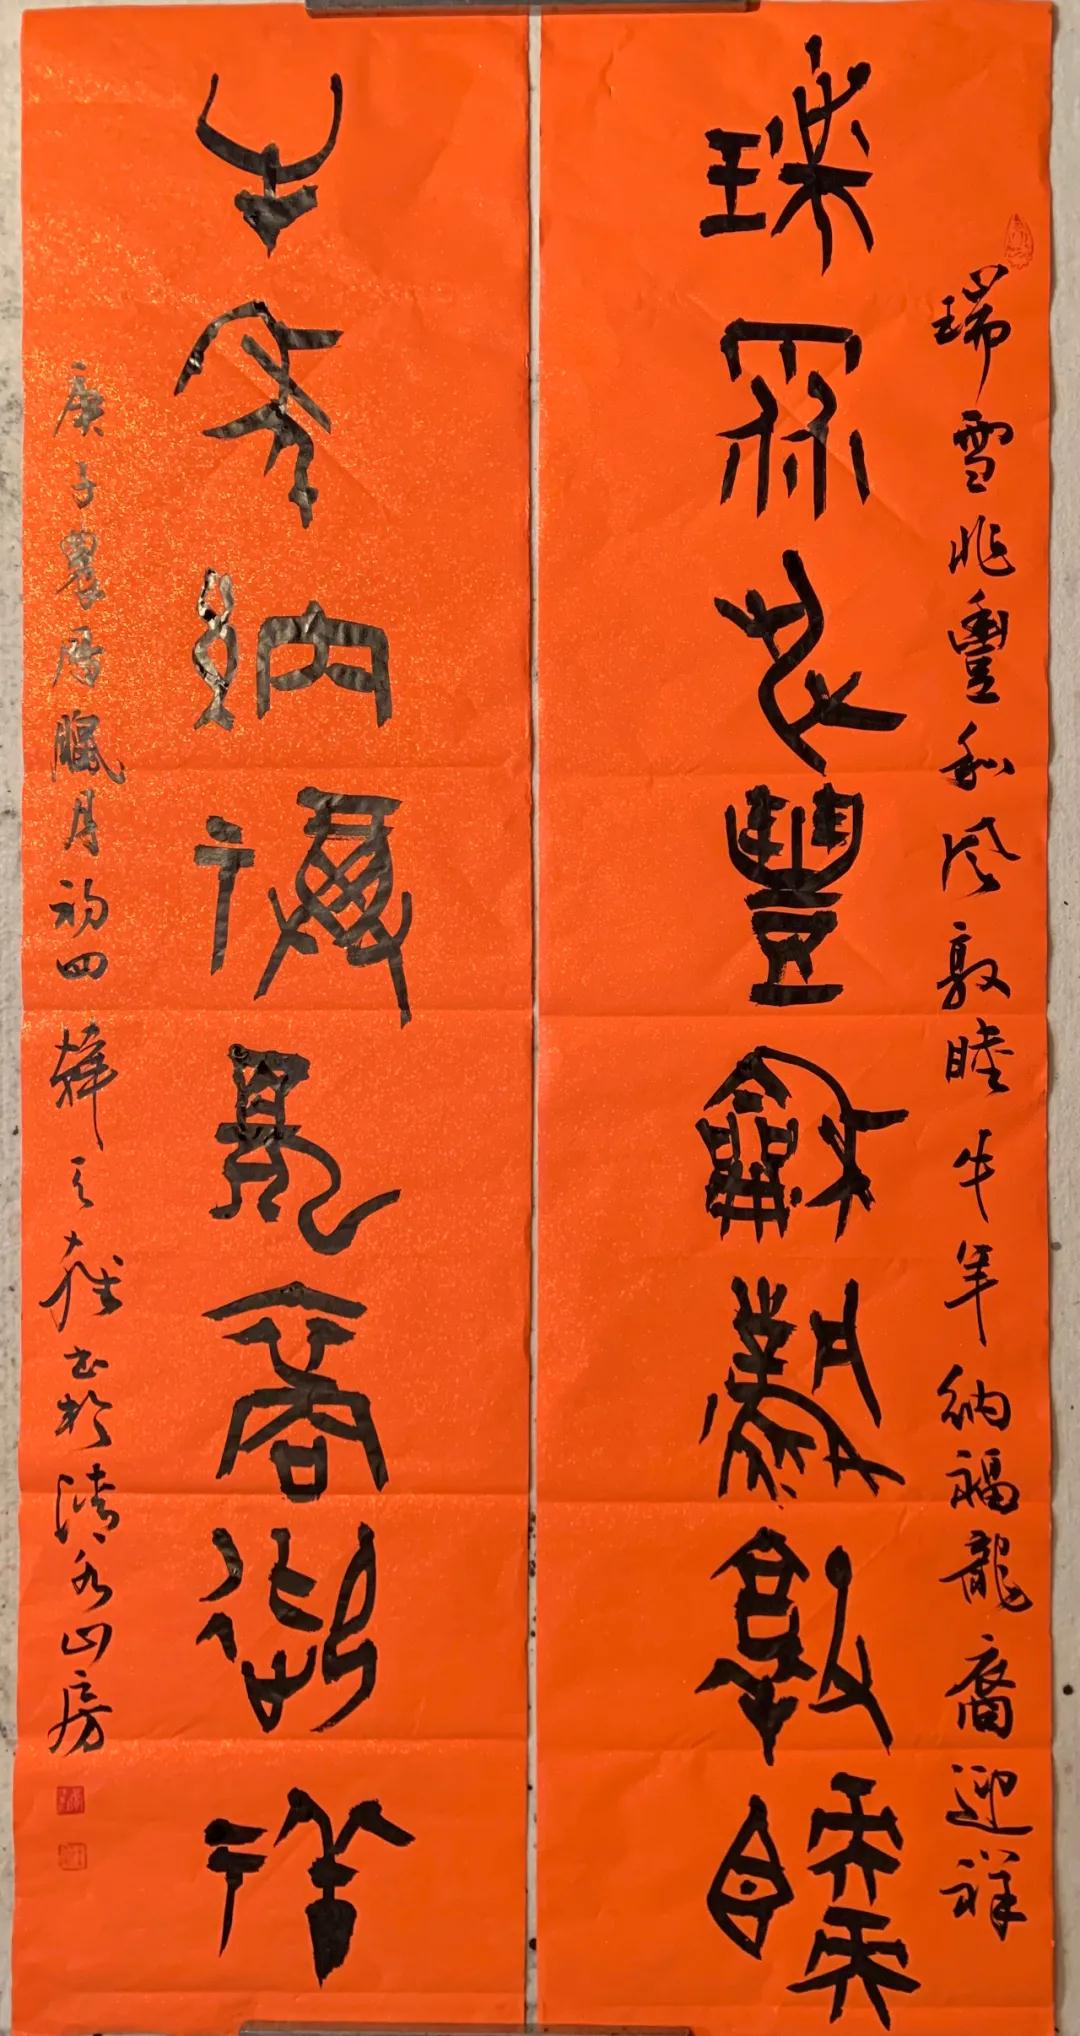 瑞雪兆豐和風敦睦牛年納福龍裔迎祥
瑞雪兆豐龢風敦睦
牛年納福龍裔迎祥
庚子農曆臘月初四書於山房